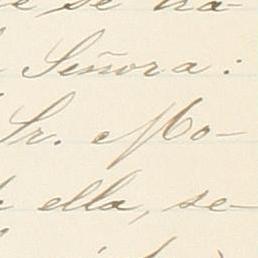 e se ha-
Señora:
Sr. Mo-
ella, se-